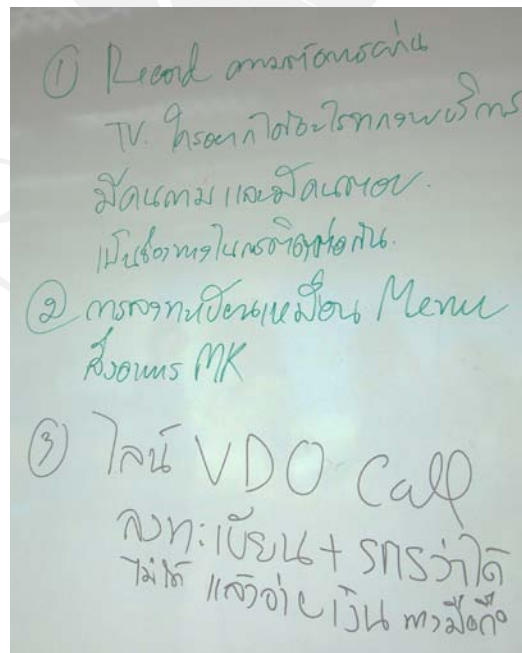 ① Record ความต้องการผ่าน
TV. ใครอยากได้อะไรจากงานบริการ
มีคนถาม และมีคนตอบ.
เป็นช่องทางในการติดต่อกัน.
② การลงทะเบียนเหมือน Menu
สั่งอาหาร MK
③ ไลน์ VDO Call
ลงทะเบียน + ว่าได้
ไม่ได้ แล้วจ่ายเงิน ทางมือถือ